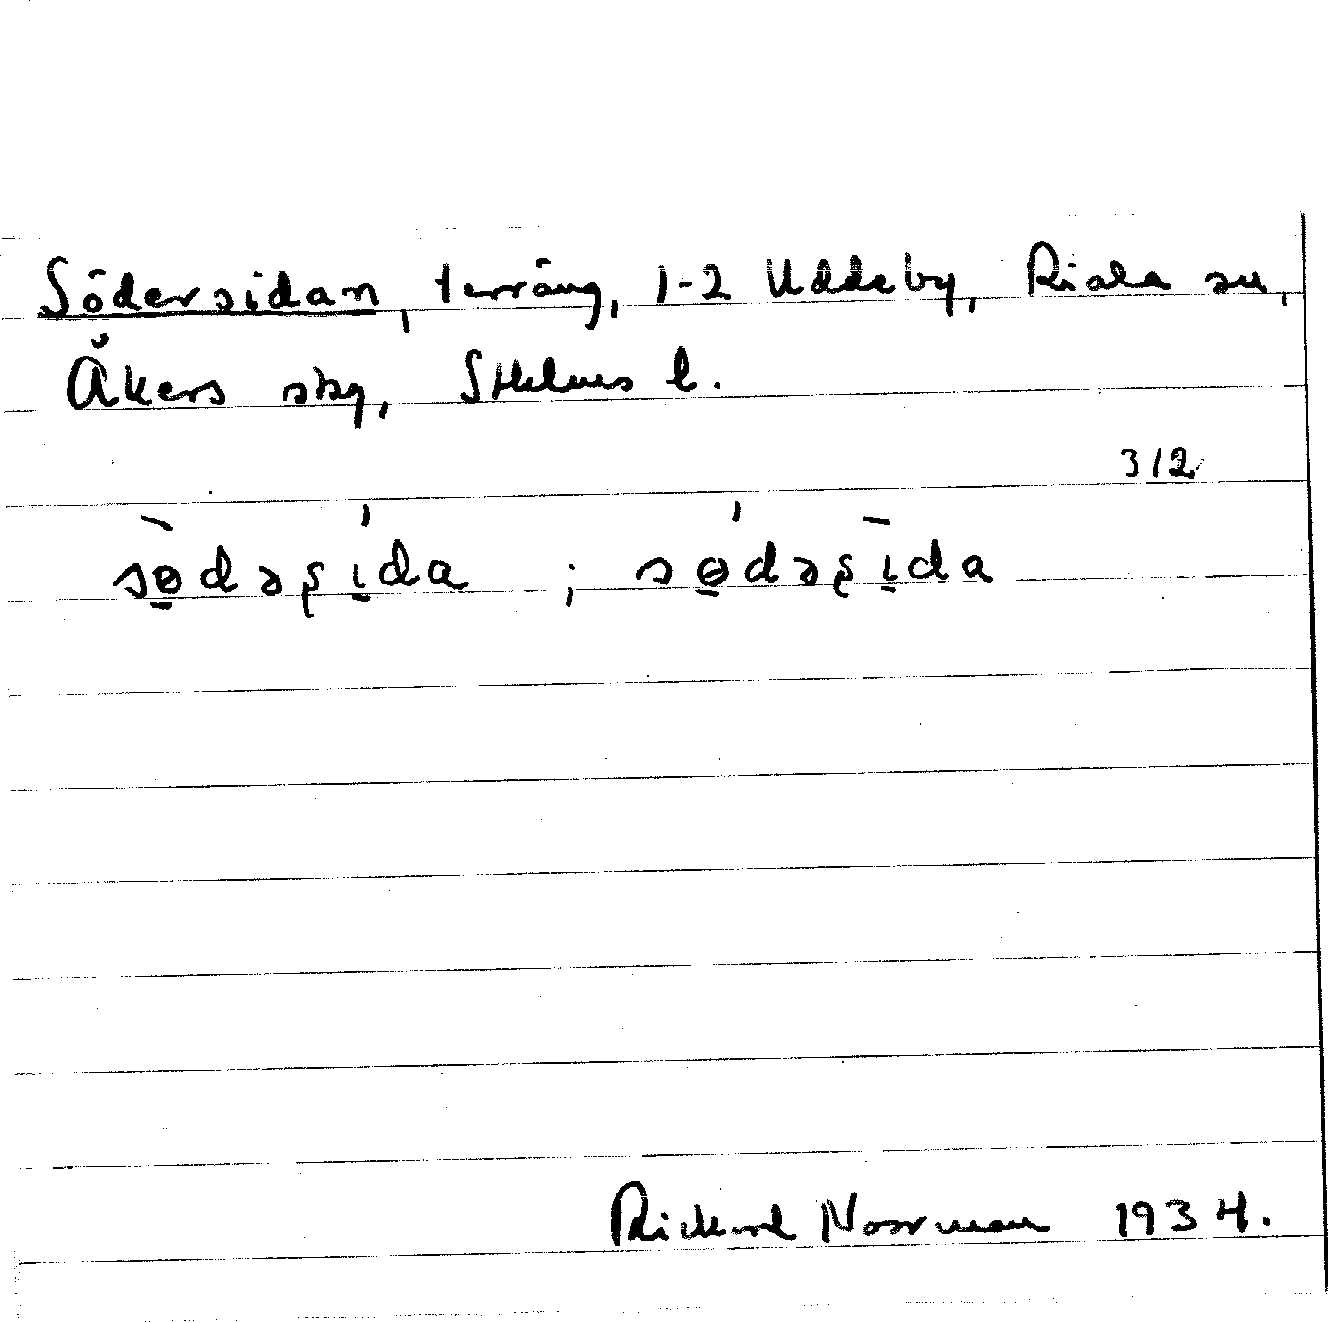 Södersidan, terräng, 1-2 Uddeby, Riala sn,
Åkers skg, Sthlms l.
312
sɵ̠̀dəʂɩ̠́da ; sɵ̠́dəʂɩ̠̄da
Rickard Norrman 1934.